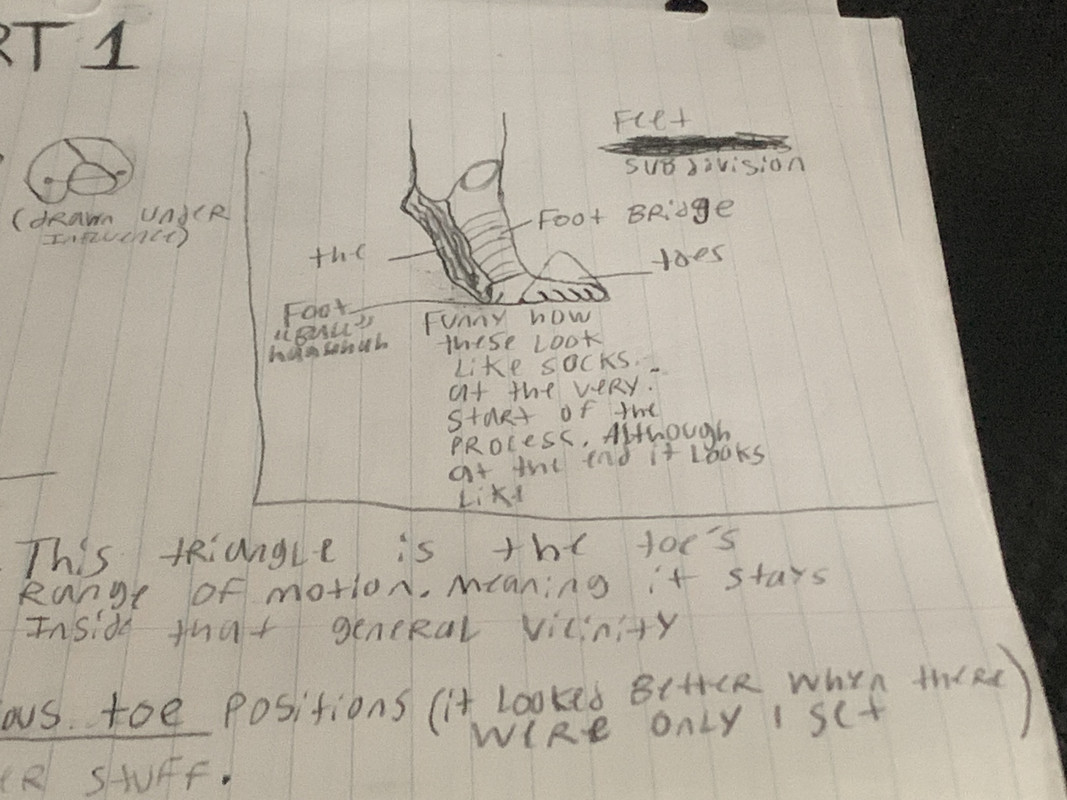 RT 1
Feet
subdivision
(drawn under
Influence)
Foot Bridge
the
toes
Foot
"Ball"
hahahah
Funny how
these look
like socks.
at the very.
start of the
process. Although
at the end it looks
like
This triangle is the toe's
Range of motion. Meaning it stays
Inside that general vicinity
ous toe positions (it looked better when there
were only 1 set)
er stuff.